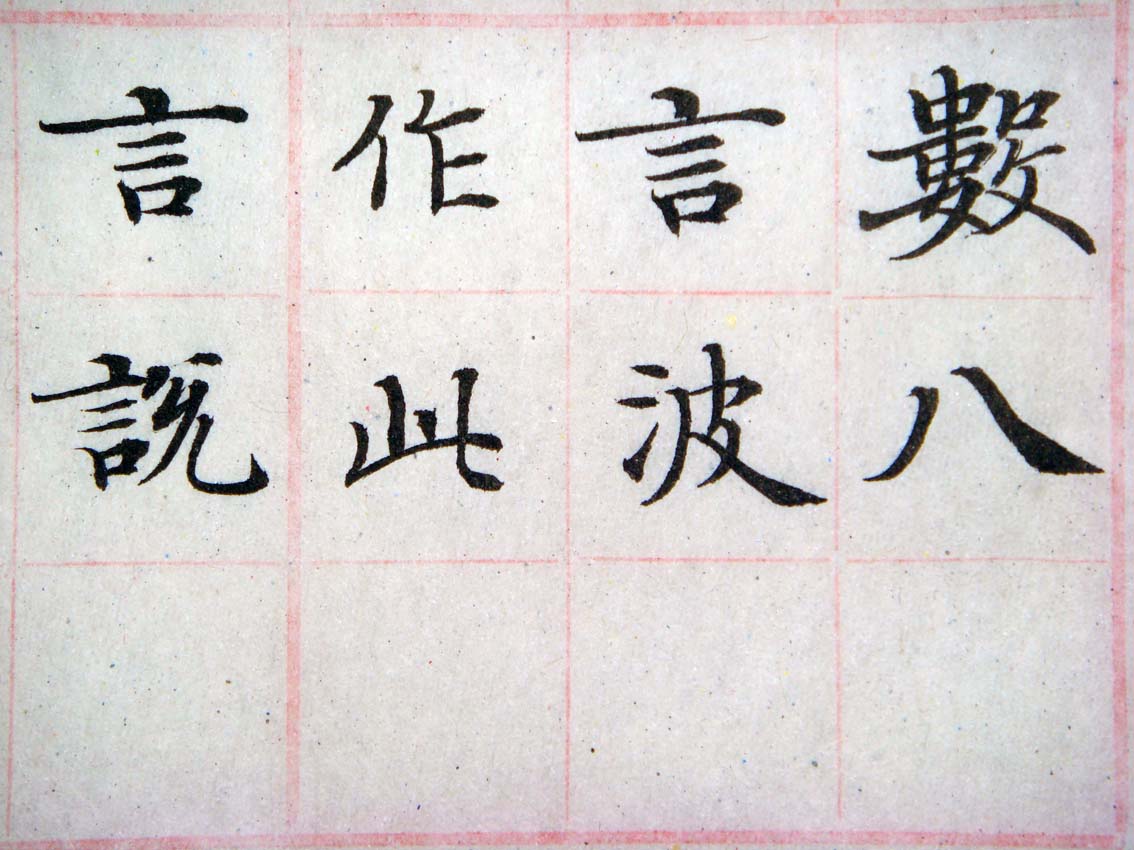 數八
言波
作此
言説